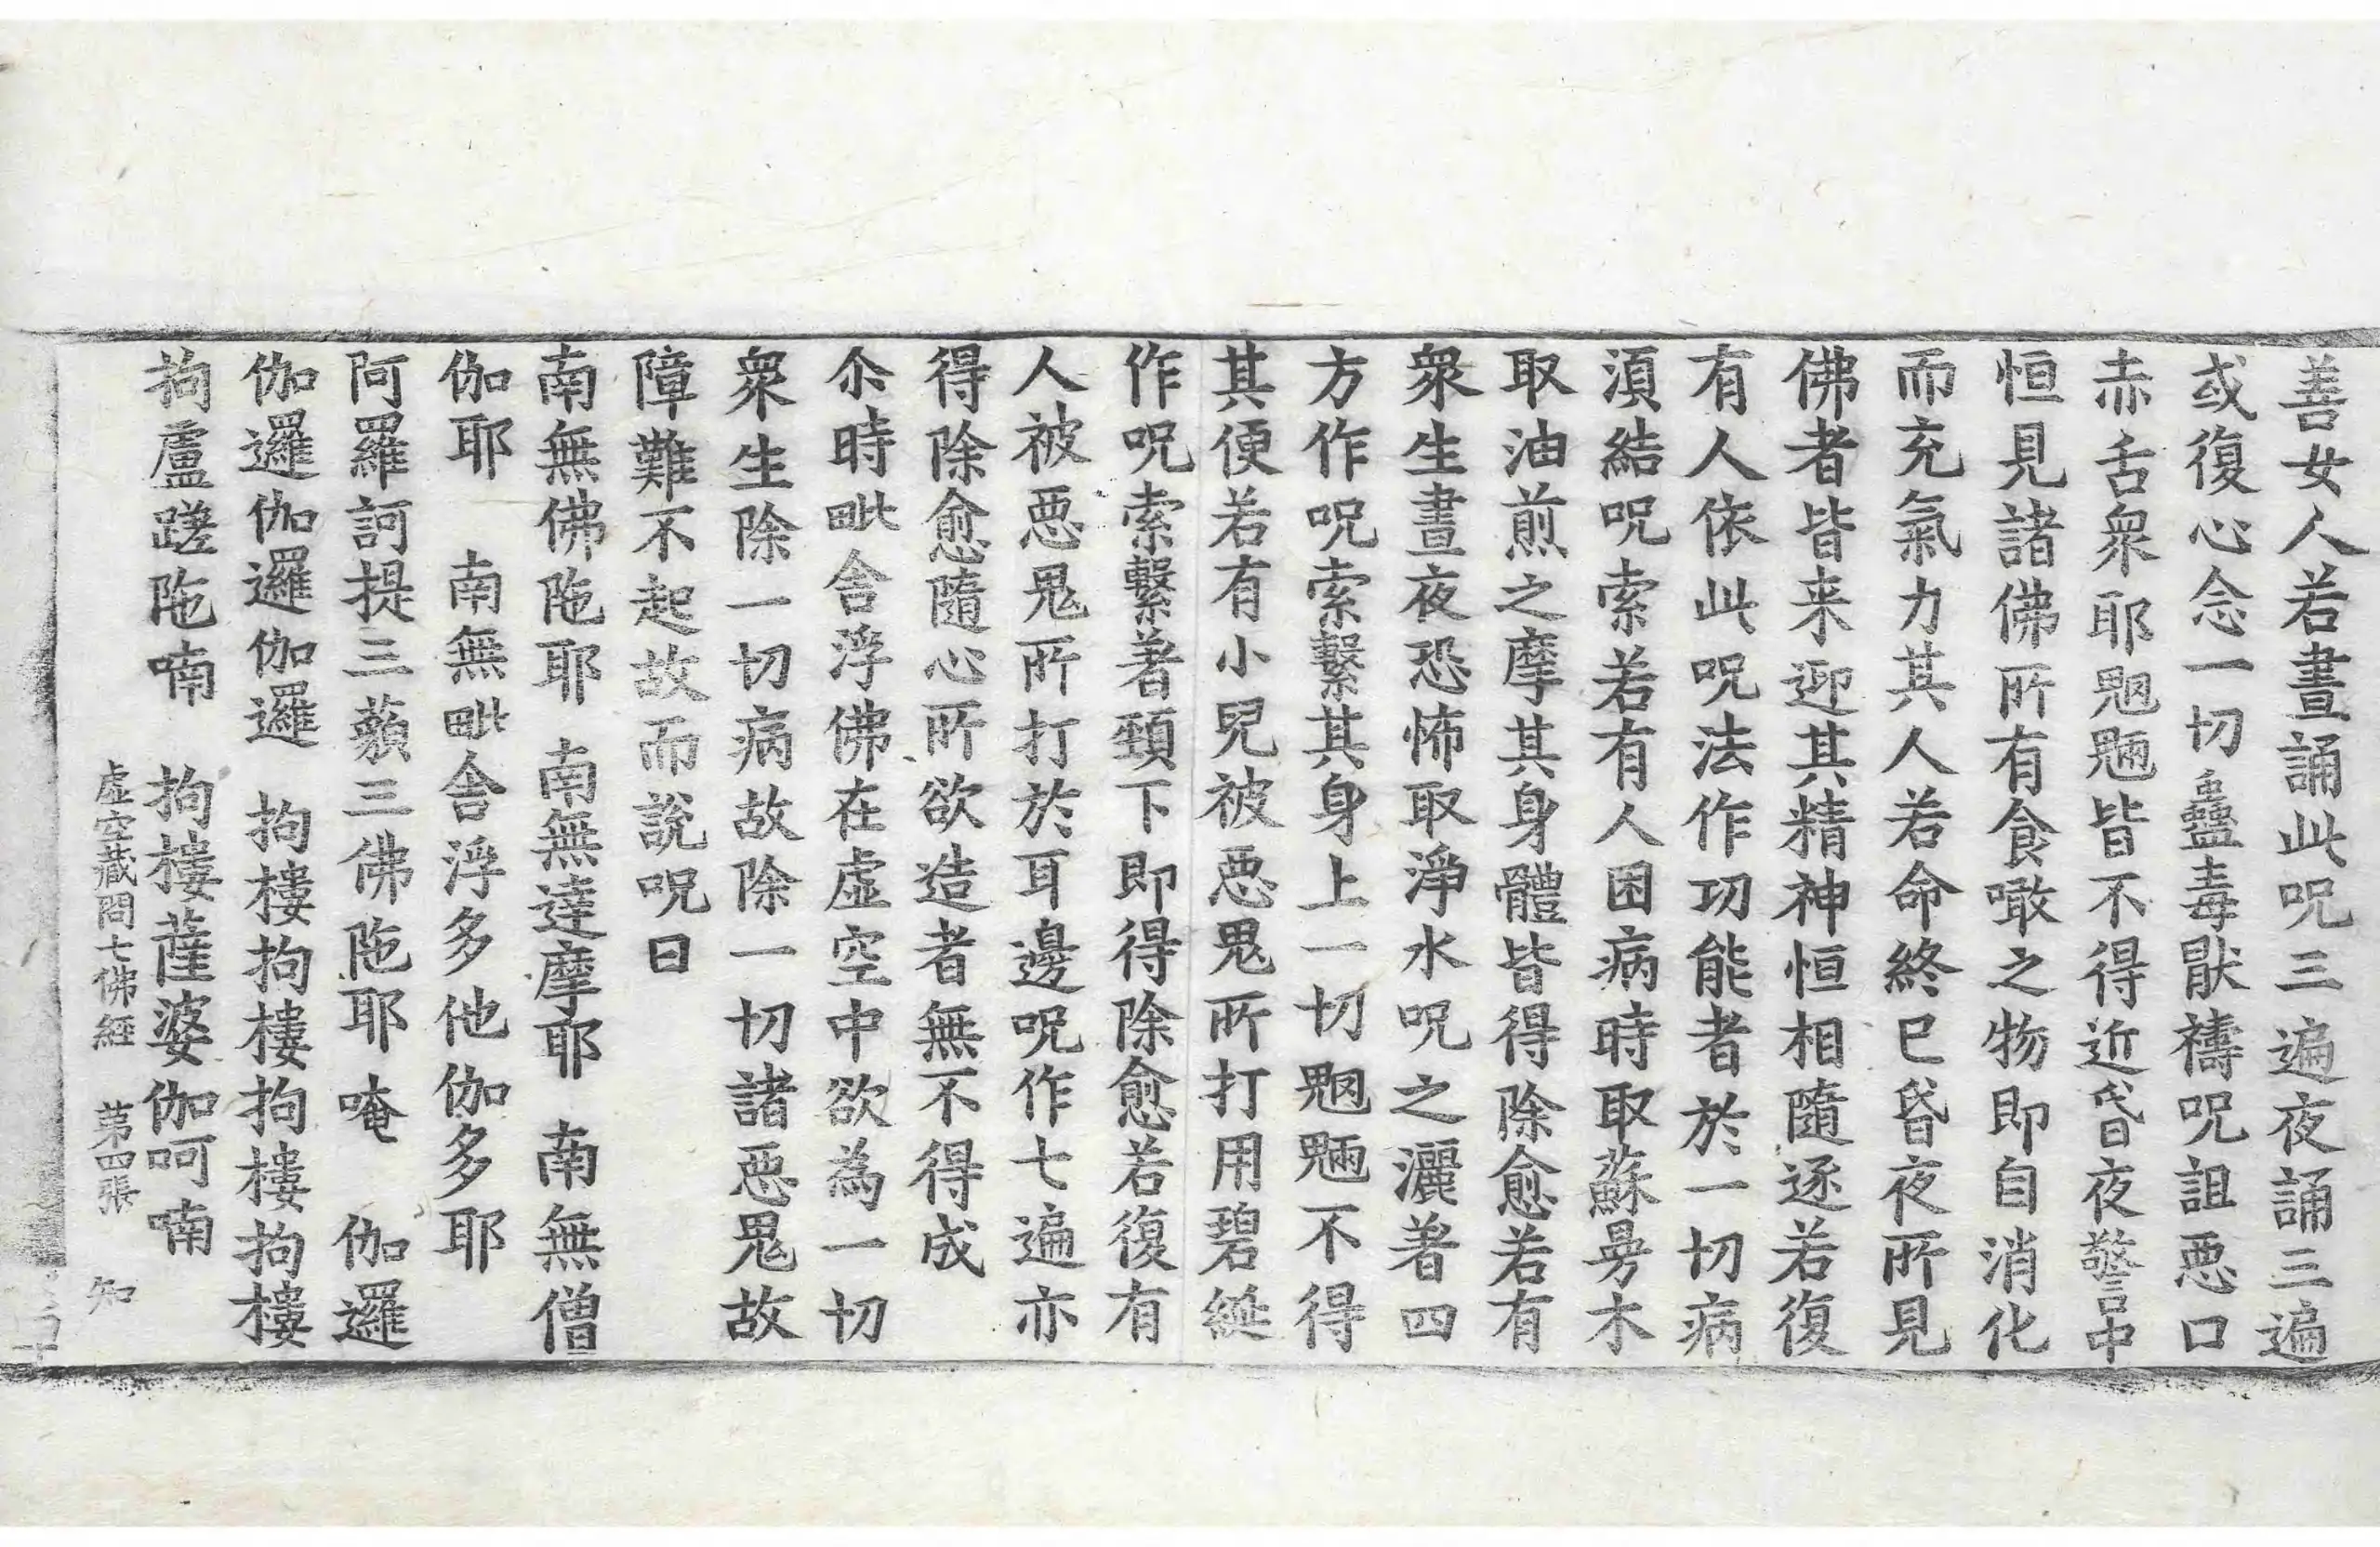 善女人若晝誦此呪三遍夜誦三遍
或復心念一切蠱毒猒禱呪詛惡口
赤舌衆耶魍魎皆不得近昏夜警中
恒見諸佛所有食噉之物即自消化
而充氣力其人若命終已昏夜所見
佛者皆来迎其精神恒相隨逐若復
有人依此呪法作功能者於一切病
湏結呪索若有人困病時取蘇昜木
取油煎之摩其身體皆得除愈若有
衆生晝夜恐怖取淨水呪之灑著四
方作呪索繫其身上一切魍魎不得
其便若有小兒被惡鬼所打用碧綖
作呪索繫著頸下即得除愈若復有
人被惡鬼所打於耳邊呪作七遍亦
得除愈隨心所欲造者無不得成
尒時毗舍浮佛在虛空中欲為一切
衆生除一切病故除一切諸惡鬼故
障難不起故而說呪曰
南無佛陁耶 南無達摩耶 南無僧
伽耶 南無毗舍浮多他伽多耶
阿羅訶提三藐三佛陁耶 唵 伽邏
伽邏伽邏伽邏 拘樓拘樓拘樓拘樓
拘盧蹉陁喃 拘樓薩婆伽呵喃
虛空藏問七佛經 苐四張 知